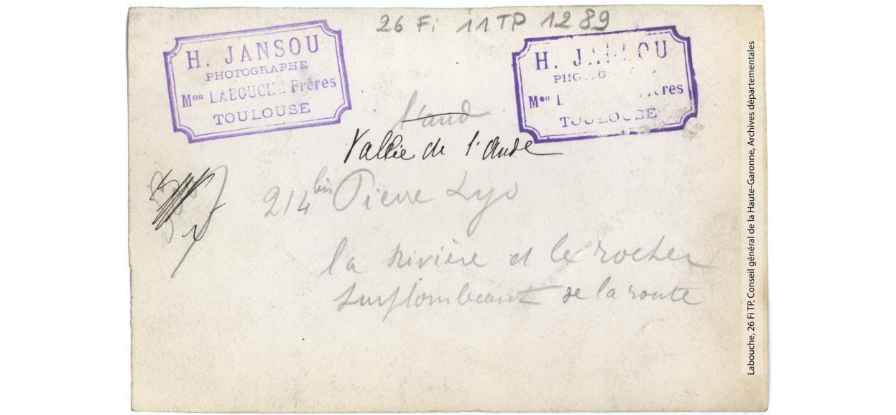 26 Fi 11 TP 1289
H. JANSOU
PHOTOGRAPHE
Mon LABOUCHE Frères
TOULOUSE
H. JANSOU
PHOTOG
Mon L Frères
TOULOUSE
Vallée de l'Aude
214 bis Pierre Lys
la rivière et le rocher
surplombant de la route
Labouche, 26 Fi TP, Conseil général de la Haute-Garonne, Archives départementales